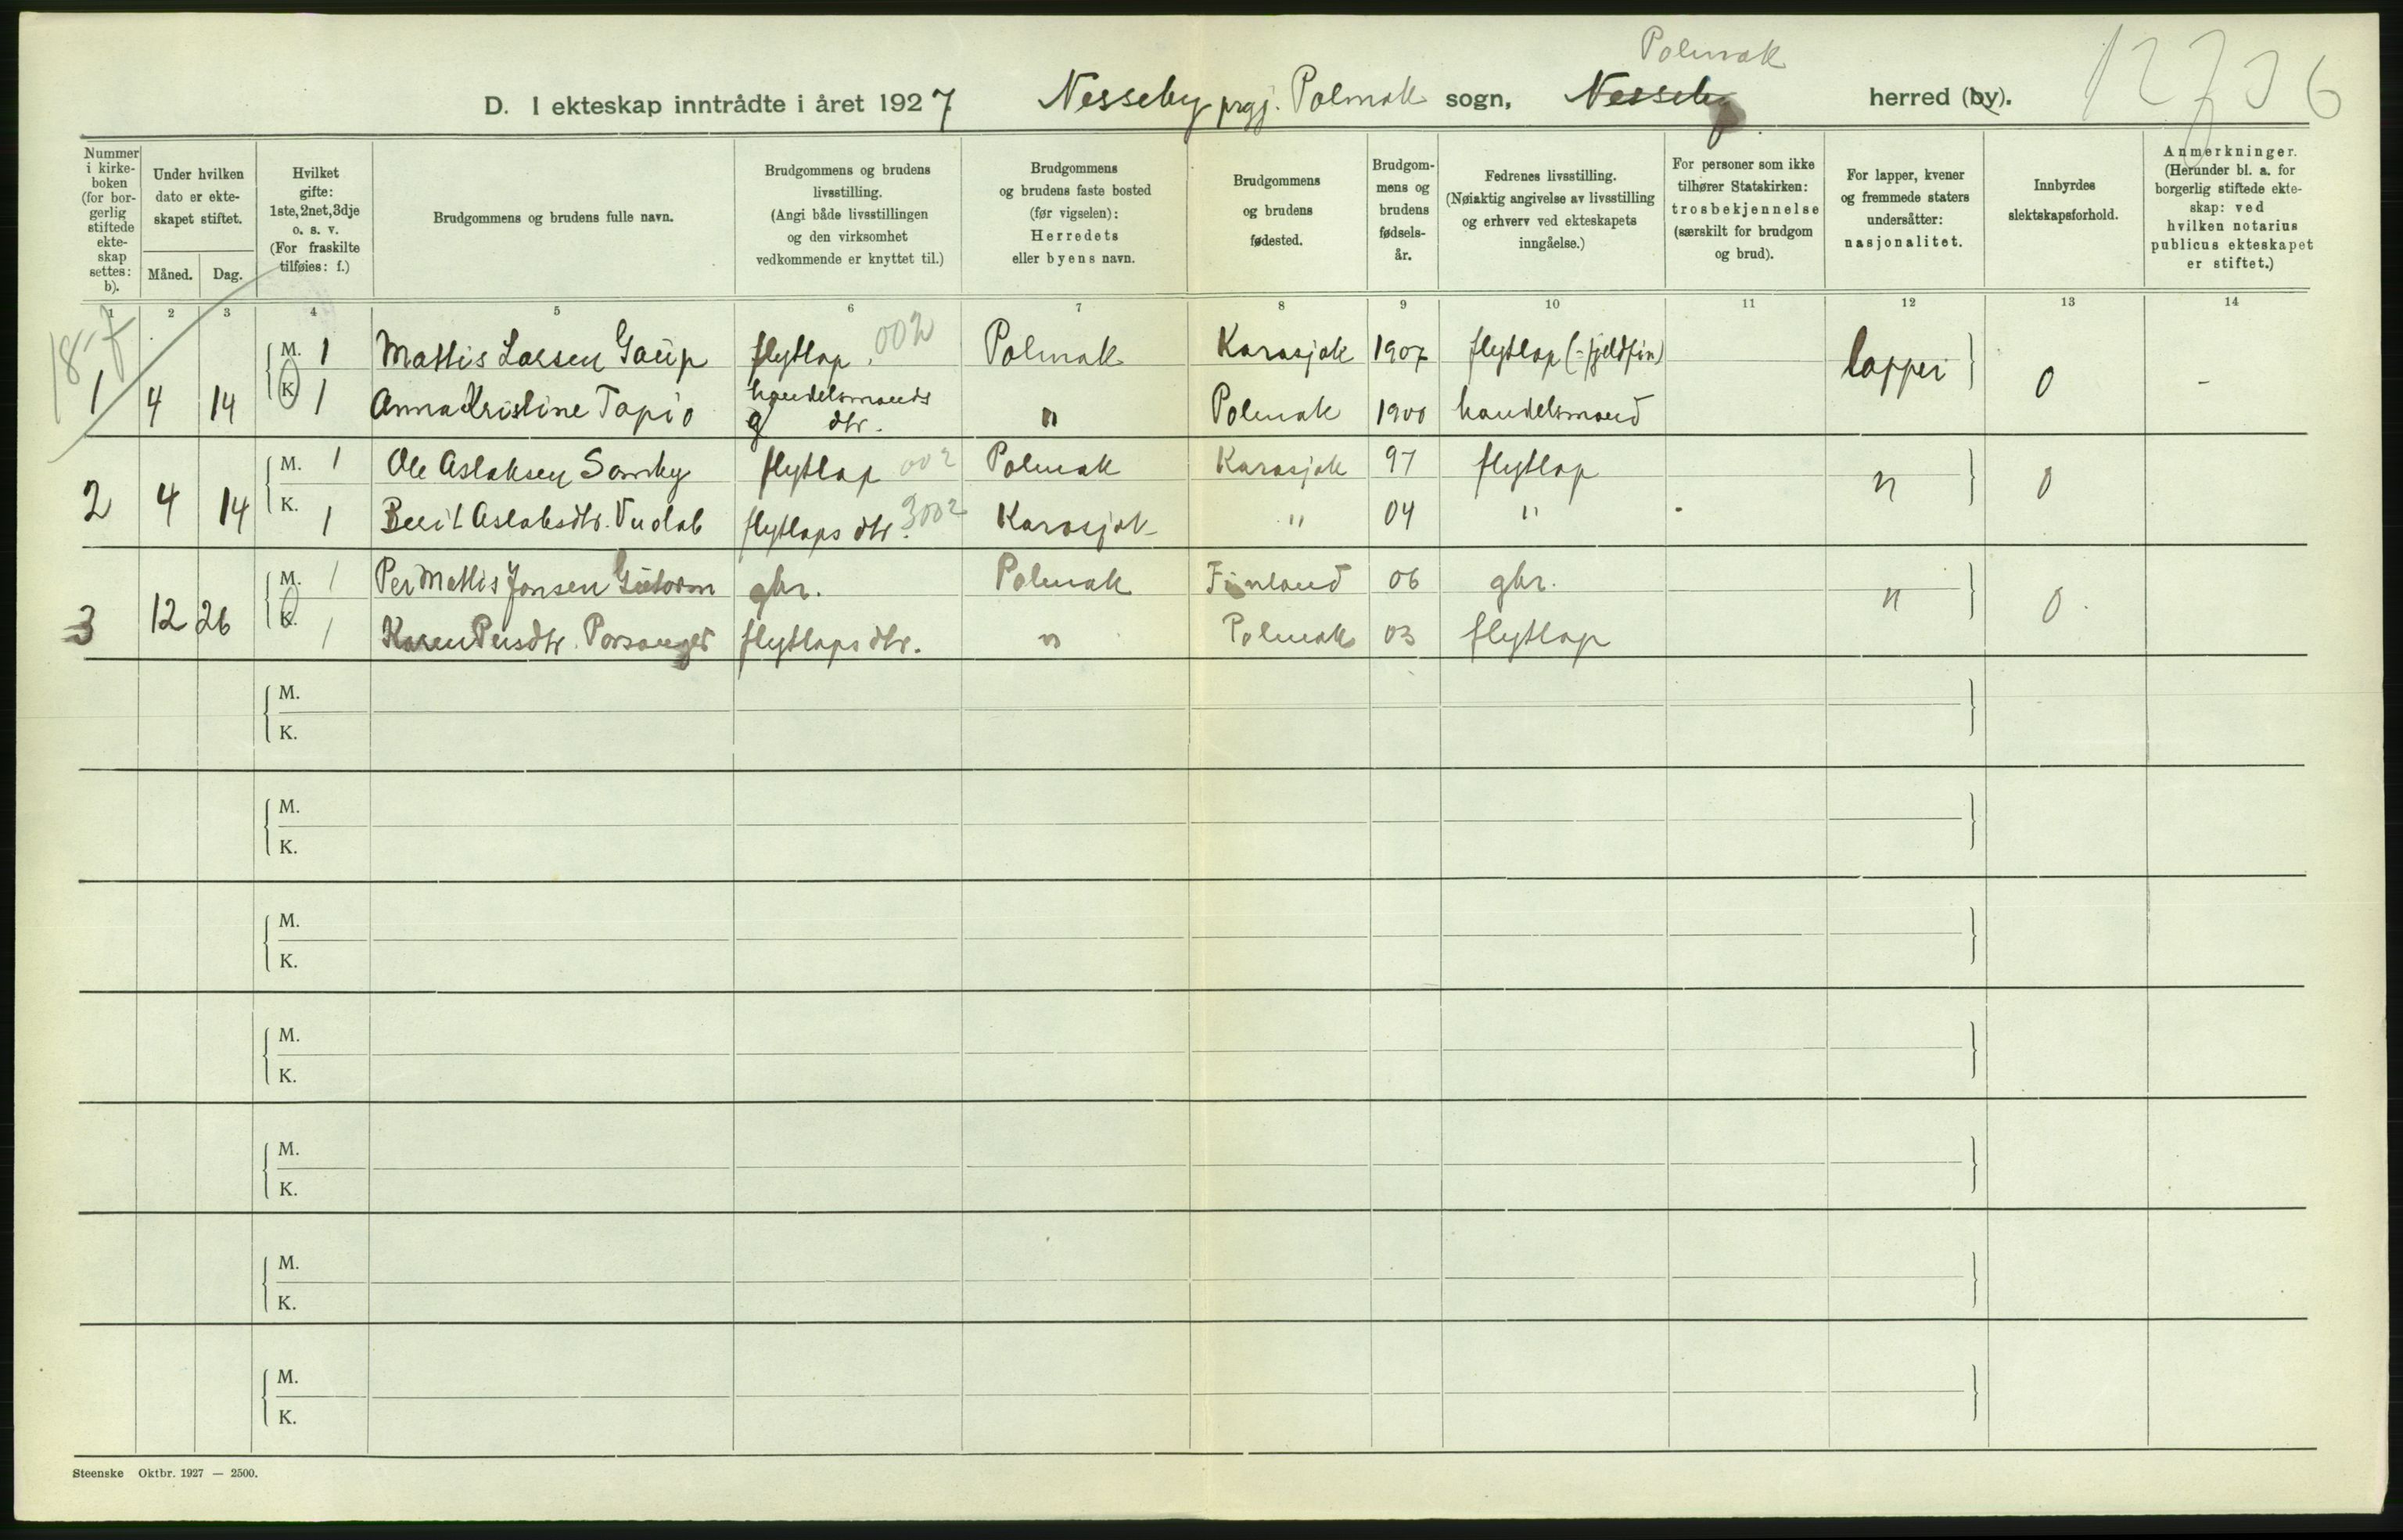 Polmak
12736
D. I ekteskap inntrådte i året 1927 Nesseby prgj. Polmak sogn, Nesseby herred (by).
Nummer i kirkeboken (for borgerlig stiftede ekteskap settes: b).
Under hvilken dato er ekteskapet stiftet.
Måned. Dag.
Hvilket gifte: 1ste, 2net, 3dje o. s. v. (For fraskilte tilføies: f.)
Brudgommens og brudens fulle navn.
Brudgommens og brudens livsstilling. (Angi både livsstillingen og den virksomhet vedkommende er knyttet til.)
Brudgommens og brudens faste bosted (før vigselen): Herredets eller byens navn.
Brudgommens og brudens fødested.
Brudgommens og brudens fødselsår.
Fedrenes livsstilling. (Nøiaktig angivelse av livsstilling og erhverv ved ekteskapets inngåelse.)
For personer som ikke tilhører Statskirken: trosbekjennelse (særskilt for brudgom og brud).
For lapper, kvener og fremmede staters undersåtter: nasjonalitet.
Innbyrdes slektskapsforhold.
Anmerkninger. (Herunder bl. a. for borgerlig stiftede ekteskap: ved hvilken notarius publicus ekteskapet er stiftet.)
1 2 3 4 5 6 7 8 9 10 11 12 13 14
18-7
M. 1 Mattis Larsen Gaup flytlap. 002 Polmak Karasjok 1907 flytlap (= fjeldfin) lapper
1 4 14 K 1 Anna Kristine Tapio handelsmands dtr. " Polmak 1900 handelsmand 0 -
M. 1 Ole Aslaksen Somby flytlap 002 Polmak Karasjok 97 flytlap
2 4 14 K. 1 Berit Aslaksdtr. Vuolab flytlaps dtr. 3002 Karasjok " 04 " " 0
M. 1 Per Mattis Jonsen Guttorm gbr. Polmak Finland 06 gbr.
3 12 26 K. 1 Karen Persdtr. Porsanger flytlaps dtr. " Polmak 03 flytlap " 0
M.
K.
M.
K.
M.
K.
M.
K.
M.
K.
M.
K.
M.
K.
Steenske Oktbr. 1927 — 2500.